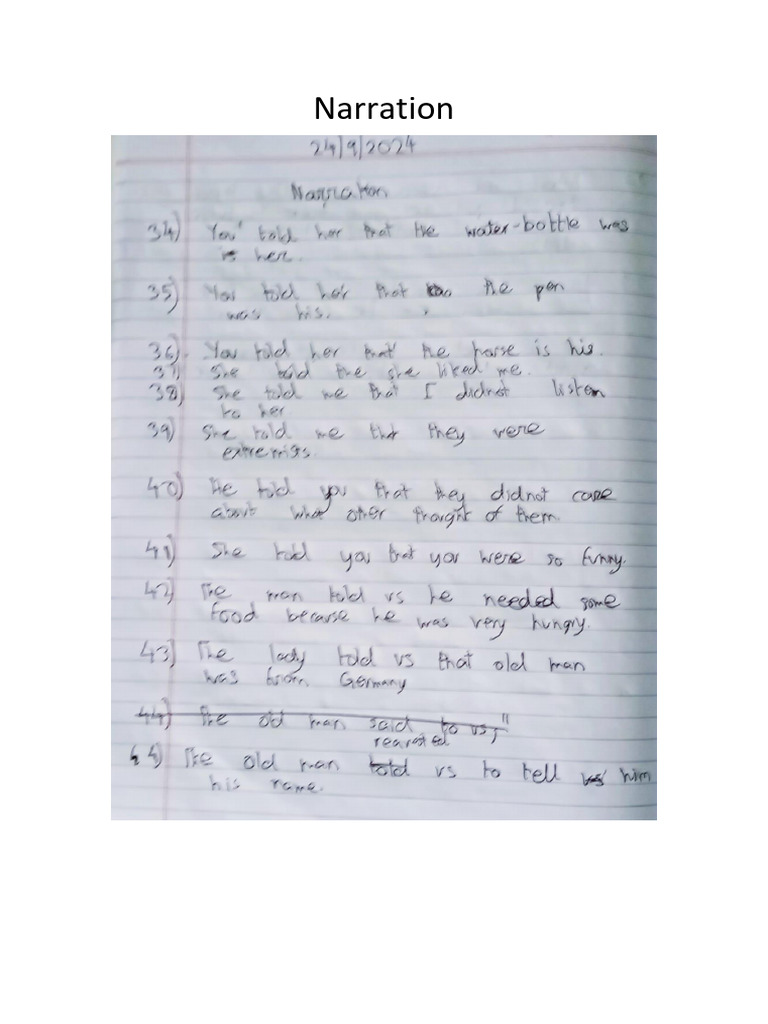 Narration
24/9/2024
Narration
34) You told her that the water-bottle was
is her.
35) You told her that the pen
was his.
36) You told her that the horse is his.
37) She told me she liked me.
38) She told me that I didnot listen
to her
39) She told me that they were
extremiss.
40) He told you that they didnot care
about what other thought of them.
41) She told you that you were so funny.
42) The man told us he needed some
food because he was very hungry.
43) The lady told us that old man
was from Germany
44) The old man said to us, "
reavsted
44) The old man told us to tell him
his name.